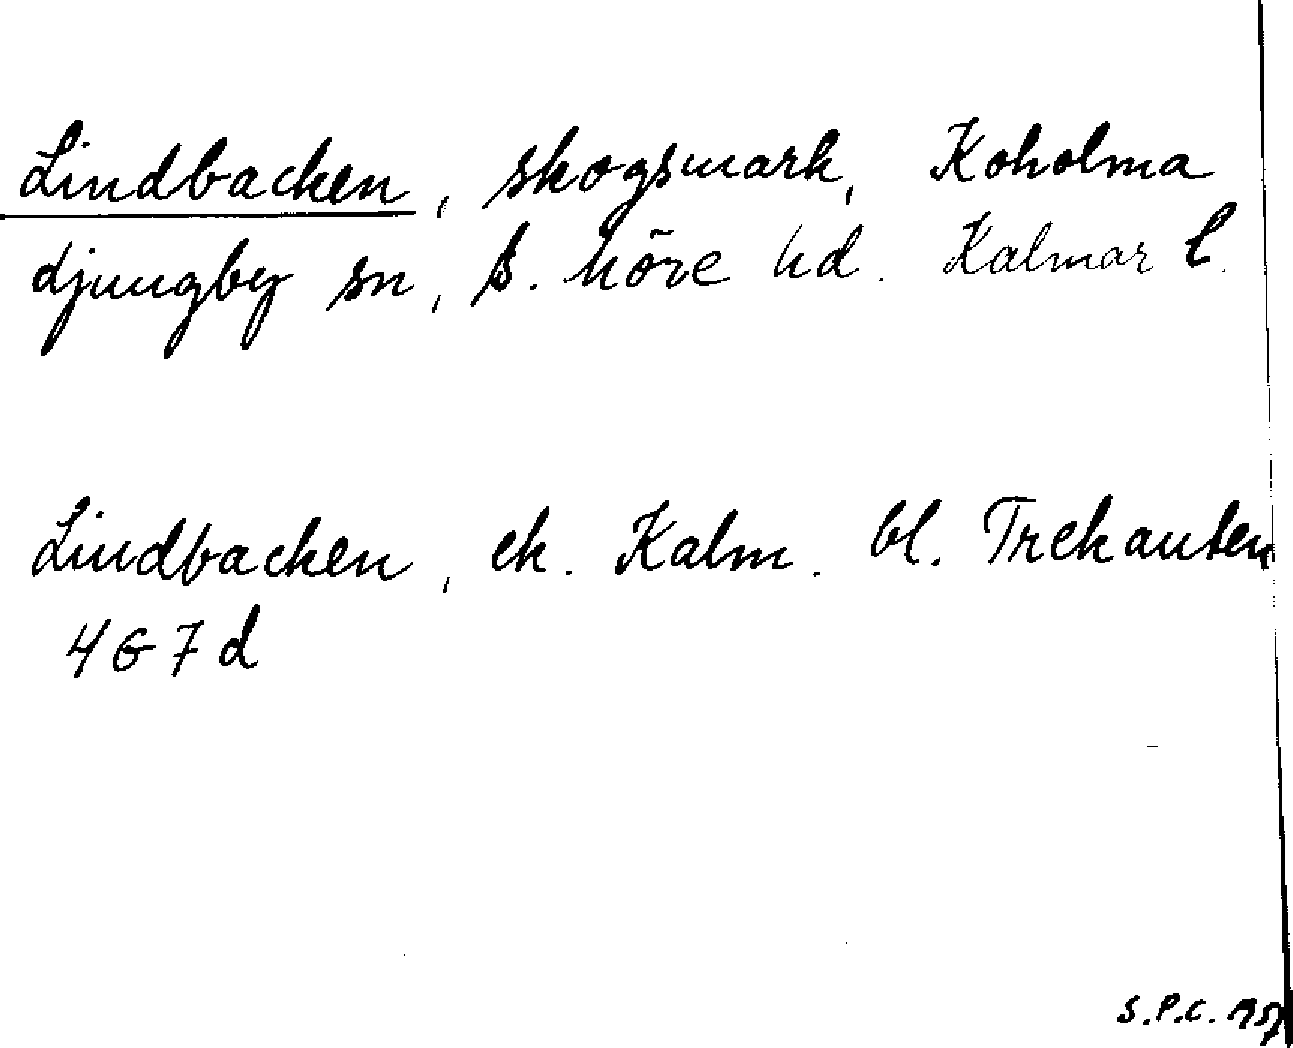 Lindbacken, skogsmark, Koholma
djungby sn, S. Möre hd. Kalmar l.
Lindbacken, ek. Kalm. bl. Trekanten
4G7d
S.P.C. 1957